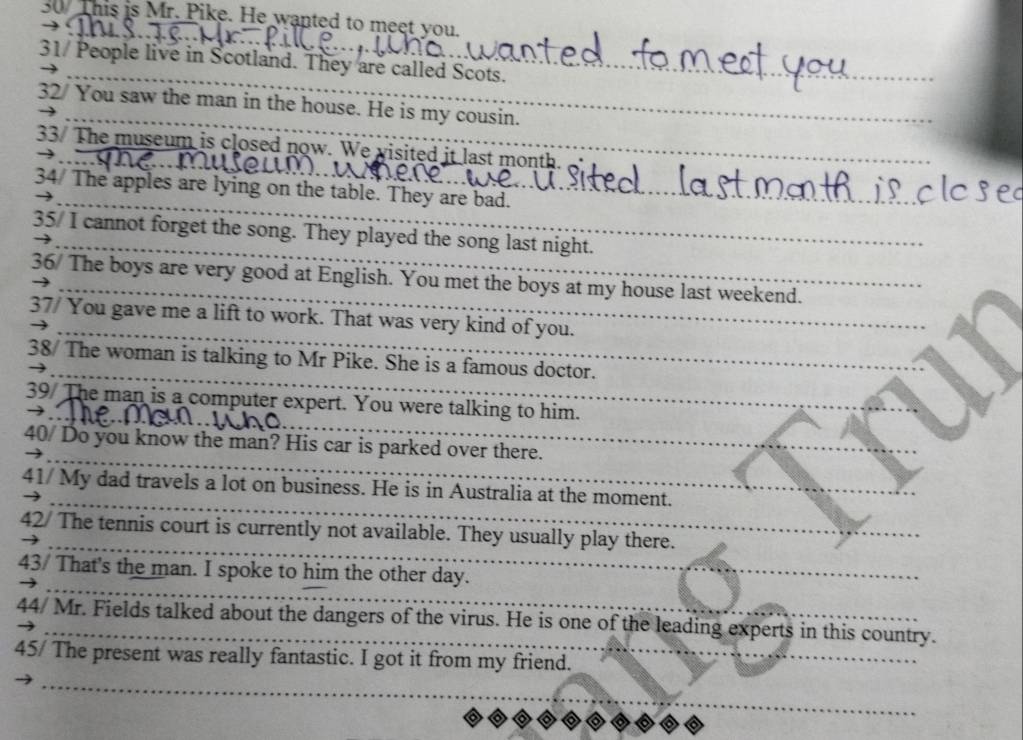 30/ This is Mr. Pike. He wanted to meet you.
→ This is Mr Pike, who wanted to meet you
31/ People live in Scotland. They are called Scots.
→
32/ You saw the man in the house. He is my cousin.
→
33/ The museum is closed now. We visited it last month.
→ The museum where we visited last month is closed
34/ The apples are lying on the table. They are bad.
→
35/ I cannot forget the song. They played the song last night.
→
36/ The boys are very good at English. You met the boys at my house last weekend.
→
37/ You gave me a lift to work. That was very kind of you.
→
38/ The woman is talking to Mr Pike. She is a famous doctor.
→
39/ The man is a computer expert. You were talking to him.
→ The man who
40/ Do you know the man? His car is parked over there.
→
41/ My dad travels a lot on business. He is in Australia at the moment.
→
42/ The tennis court is currently not available. They usually play there.
→
43/ That's the man. I spoke to him the other day.
→
44/ Mr. Fields talked about the dangers of the virus. He is one of the leading experts in this country.
→
45/ The present was really fantastic. I got it from my friend.
→
ang Trun